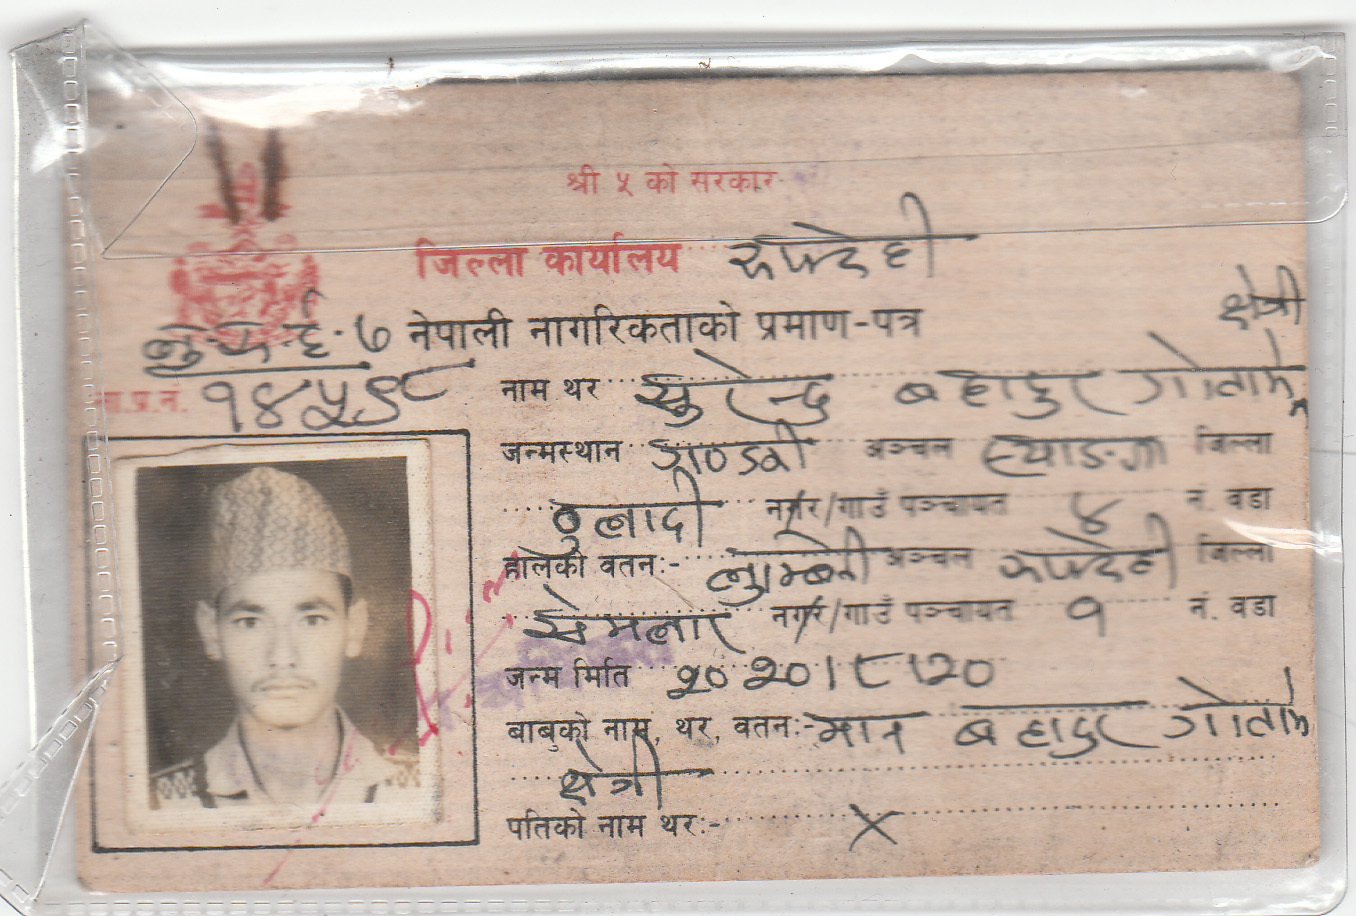 श्री ५ को सरकार
जिल्ला कार्यालय रुपन्देही
क्षेत्री
लु.रु.ई.७ नेपाली नागरिकताको प्रमाण-पत्र
ना.प्र.नं. १४५९८
नाम थर सुरेन्द्र बहादुर गौतम
जन्मस्थान गण्डकी अञ्चल स्याङ्गा जिल्ला
ठुलादी नगर/गाउँ पञ्चायत ४ नं. वडा
हालको वतन:- लुम्बिनी अञ्चल रुपन्देही जिल्ला
सेमलार नगर/गाउँ पञ्चायत १ नं. वडा
जन्म मिति २०२०।८।२०
बाबुको नाम, थर, वतन:- मान बहादुर गौतम
क्षेत्री
पतिको नाम थर:- X